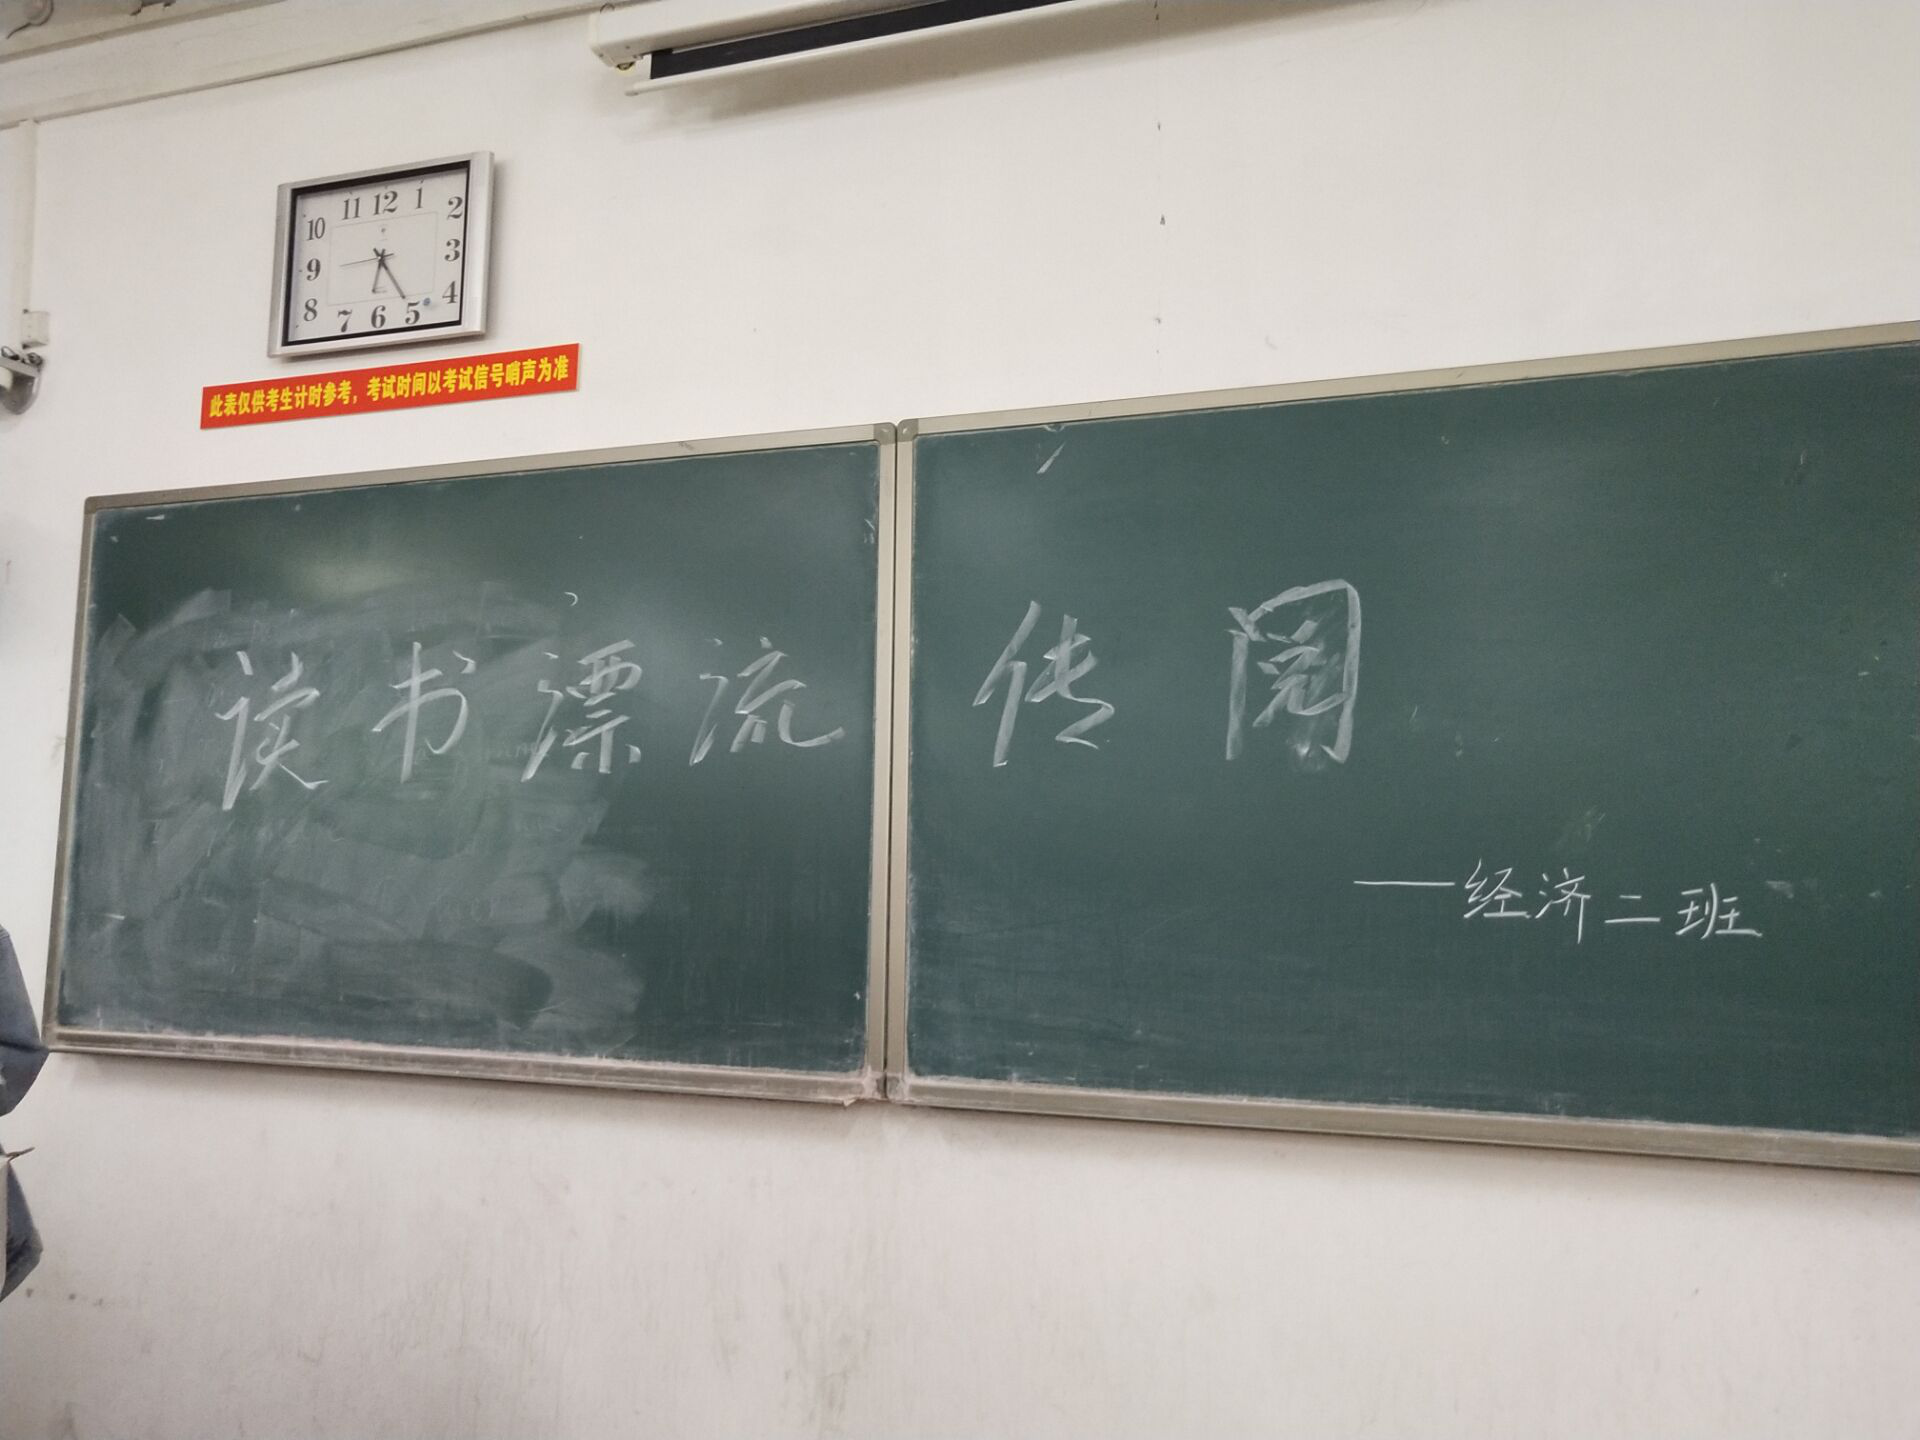 11 12 1
10 2
9 3
8 4
7 6 5
此表仅供考生计时参考，考试时间以考试信号哨声为准
读书漂流传阅
——经济二班